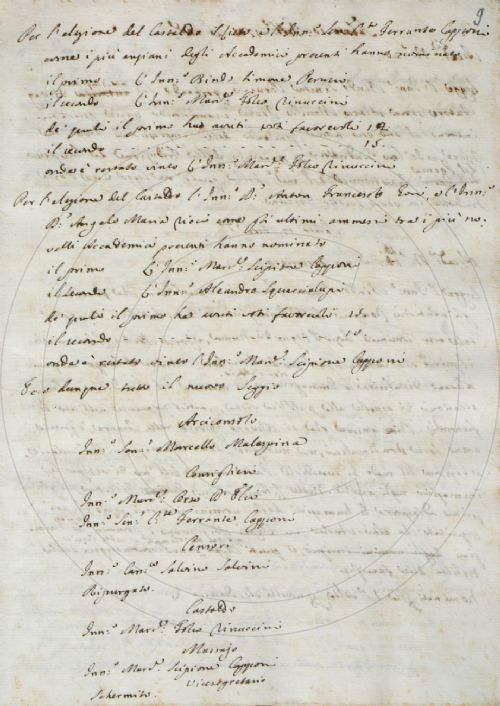 9
Per l'elezione del Castaldo e l'Inn.º Ferrante Capponi
come i più anziani degli Accademici presenti hanno nominato
il primo l'Inn.º Rind. Simone Peruzzi
il secondo l'Inn.º Mar.e Folco Rinuccini
de' quali il primo ha avuti voti favorevoli
il secondo 15.
onde è restato vinto l'Inn.º Mar.e Folco Rinuccini
Per l'elezione del l'Inn.º D.r Anton Francesco Gori, e l'Inn.º
D.r Angelo Maria Ricci come gli ultimi ammessi tra i più no-
velli Accademici presenti hanno nominato
il primo l'Inn.º Mar.e Scipione Capponi
il secondo l'Inn.º Aleandro Squarcialupi
de' quali il primo ha avuti voti favorevoli
il secondo
onde è restato vinto l'Inn.º Mar.e Scipione Capponi
Ecco dunque tutto il nuovo Seggio
Arciconsolo
Inn.º Sen.e Marcello Malaspina
Consiglieri
Inn.º Mar.e Corso
Inn.º Sen.e C.te Ferrante Capponi
Censori
Inn.º Can.co Salvino Salvini
Ripurgato.
Castaldo
Inn.º Mar.e Folco Rinuccini
Massajo
Inn.º Mar.e Scipione Capponi
Vicesegretario
Schermito.